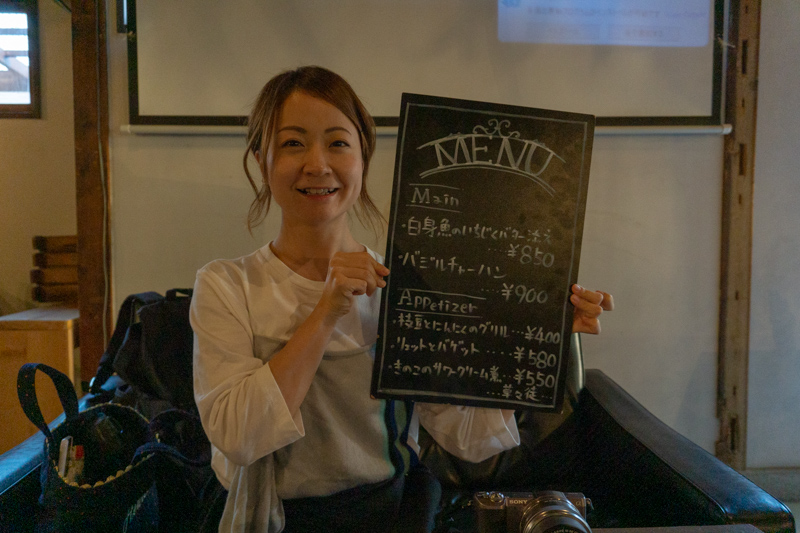 MENU
Main
・白身魚のいちじくバター添え
....¥850
・バジルチャーハン
....¥900
Appetizer
・枝豆とにんにくのグリル...¥400
・リエットとバゲット.....¥580
・きのこのサワークリーム煮...¥550
SONY